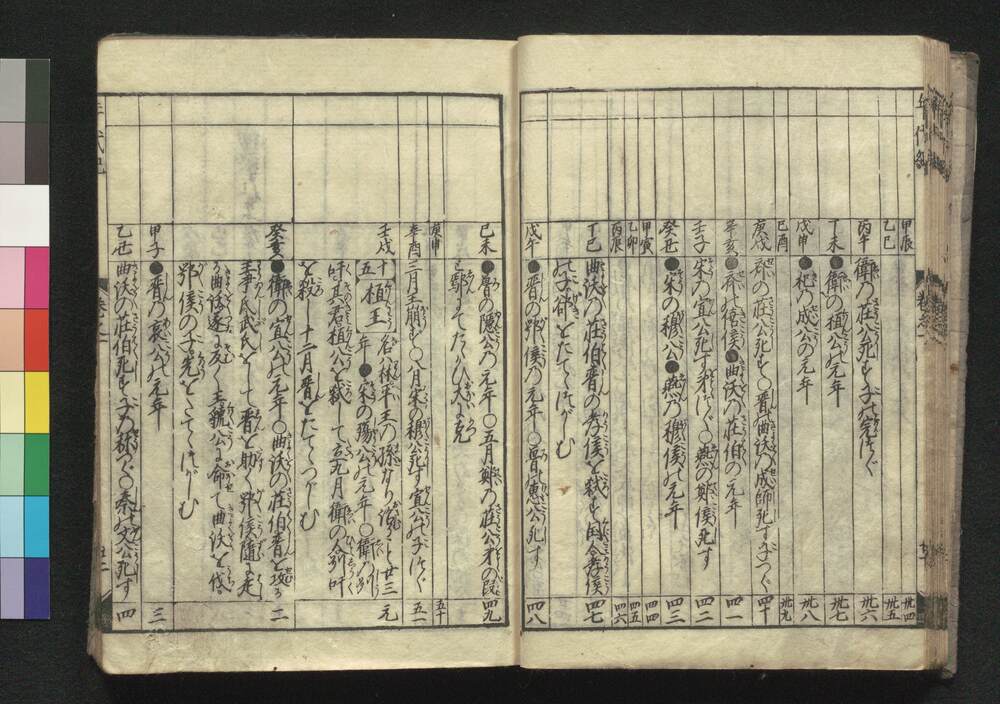 甲辰 卅四
乙巳 卅五
丙午 衛の荘公死す子の完つぐ 卅六
丁未 ●衛の桓公の元年 卅七
戊申 ●杞の成公の元年 卅八
己酉 卅九
庚戌 斉の荘公死す〇晋の曲沃の成師死す子つぐ 四十
辛亥 ●斉の僖侯●曲沃の荘伯の元年 四一
壬子 宋の宣公死す弟つぐ〇燕の鄭侯死す 四二
癸丑 ●宋の穆公●燕の穆侯の元年 四三
甲寅 四四
乙卯 四五
丙辰 四六
丁巳 曲沃の荘伯晋の孝侯を弑す国人孝侯
の子郤をたてつがしむ 四七
戊午 ●晋の鄂侯の元年〇魯の恵公死す 四八
己未 ●魯の隠公の元年〇五月鄭の荘公弟の段
と鄢にてたたかひ大に克 四九
庚申 五十
辛酉 三月王崩ず〇八月宋の穆公死す宣公の子つぐ 五一
壬戌 十五 桓王 名は林平王の孫なり 廿三
年●宋の殤公の元年〇衛の
吁其君桓公を弑して立九月衛の人州吁
を殺し十二月晋をたてつがしむ 元
癸亥 ●衛の宣公の元年〇曲沃の荘伯晋を攻る
王尹氏武氏をして晋を助く鄂侯随に走
る曲沃遂に反く王虢公に命て曲沃を伐
鄂侯の子光をたてつがしむ 二
甲子 ●晋の哀公の元年 三
乙丑 曲沃の荘伯死す子の称つぐ〇秦の文公死す 四
年代記
巻之一